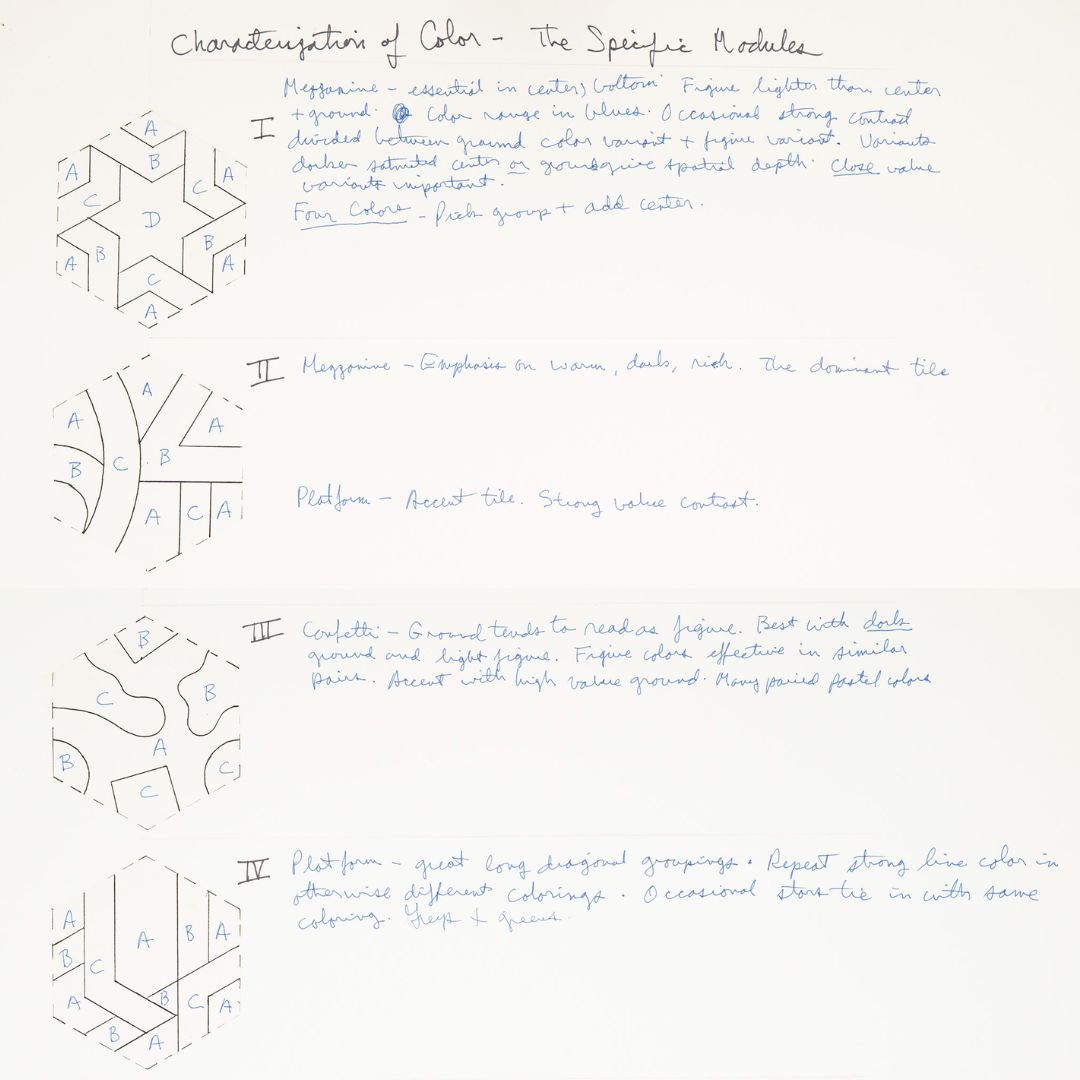 Characterization of Color - The Specific Modules
I
Mezzanine - essential in center, bottom Figure lighter than center
+ ground. Color range in blues. Occasional strong contrast
divided between ground color variant + figure variant. Variants
darker saturated center or ground give spatial depth. Close value
variants important.
Four Colors - Pick group + add center.
A
B
A
A
C
C
D
B
B
A
A
C
A
II
Mezzanine - Emphasis on warm, dark, rich. The dominant tile
Platform - Accent tile. Strong value contrast.
A
A
A
B
C
B
A
C
A
III
Confetti - Ground tends to read as figure. Best with dark
ground and light figure. Figure colors effective in similar
pairs. Accent with high value ground. Many paired pastel colors
B
C
B
A
B
C
C
IV
Platform - great long diagonal groupings. Repeat strong line color in
otherwise different colorings. Occasional stars tie in with same
coloring. Greys + greens.
A
B
A
A
B
C
A
B
C
A
B
A